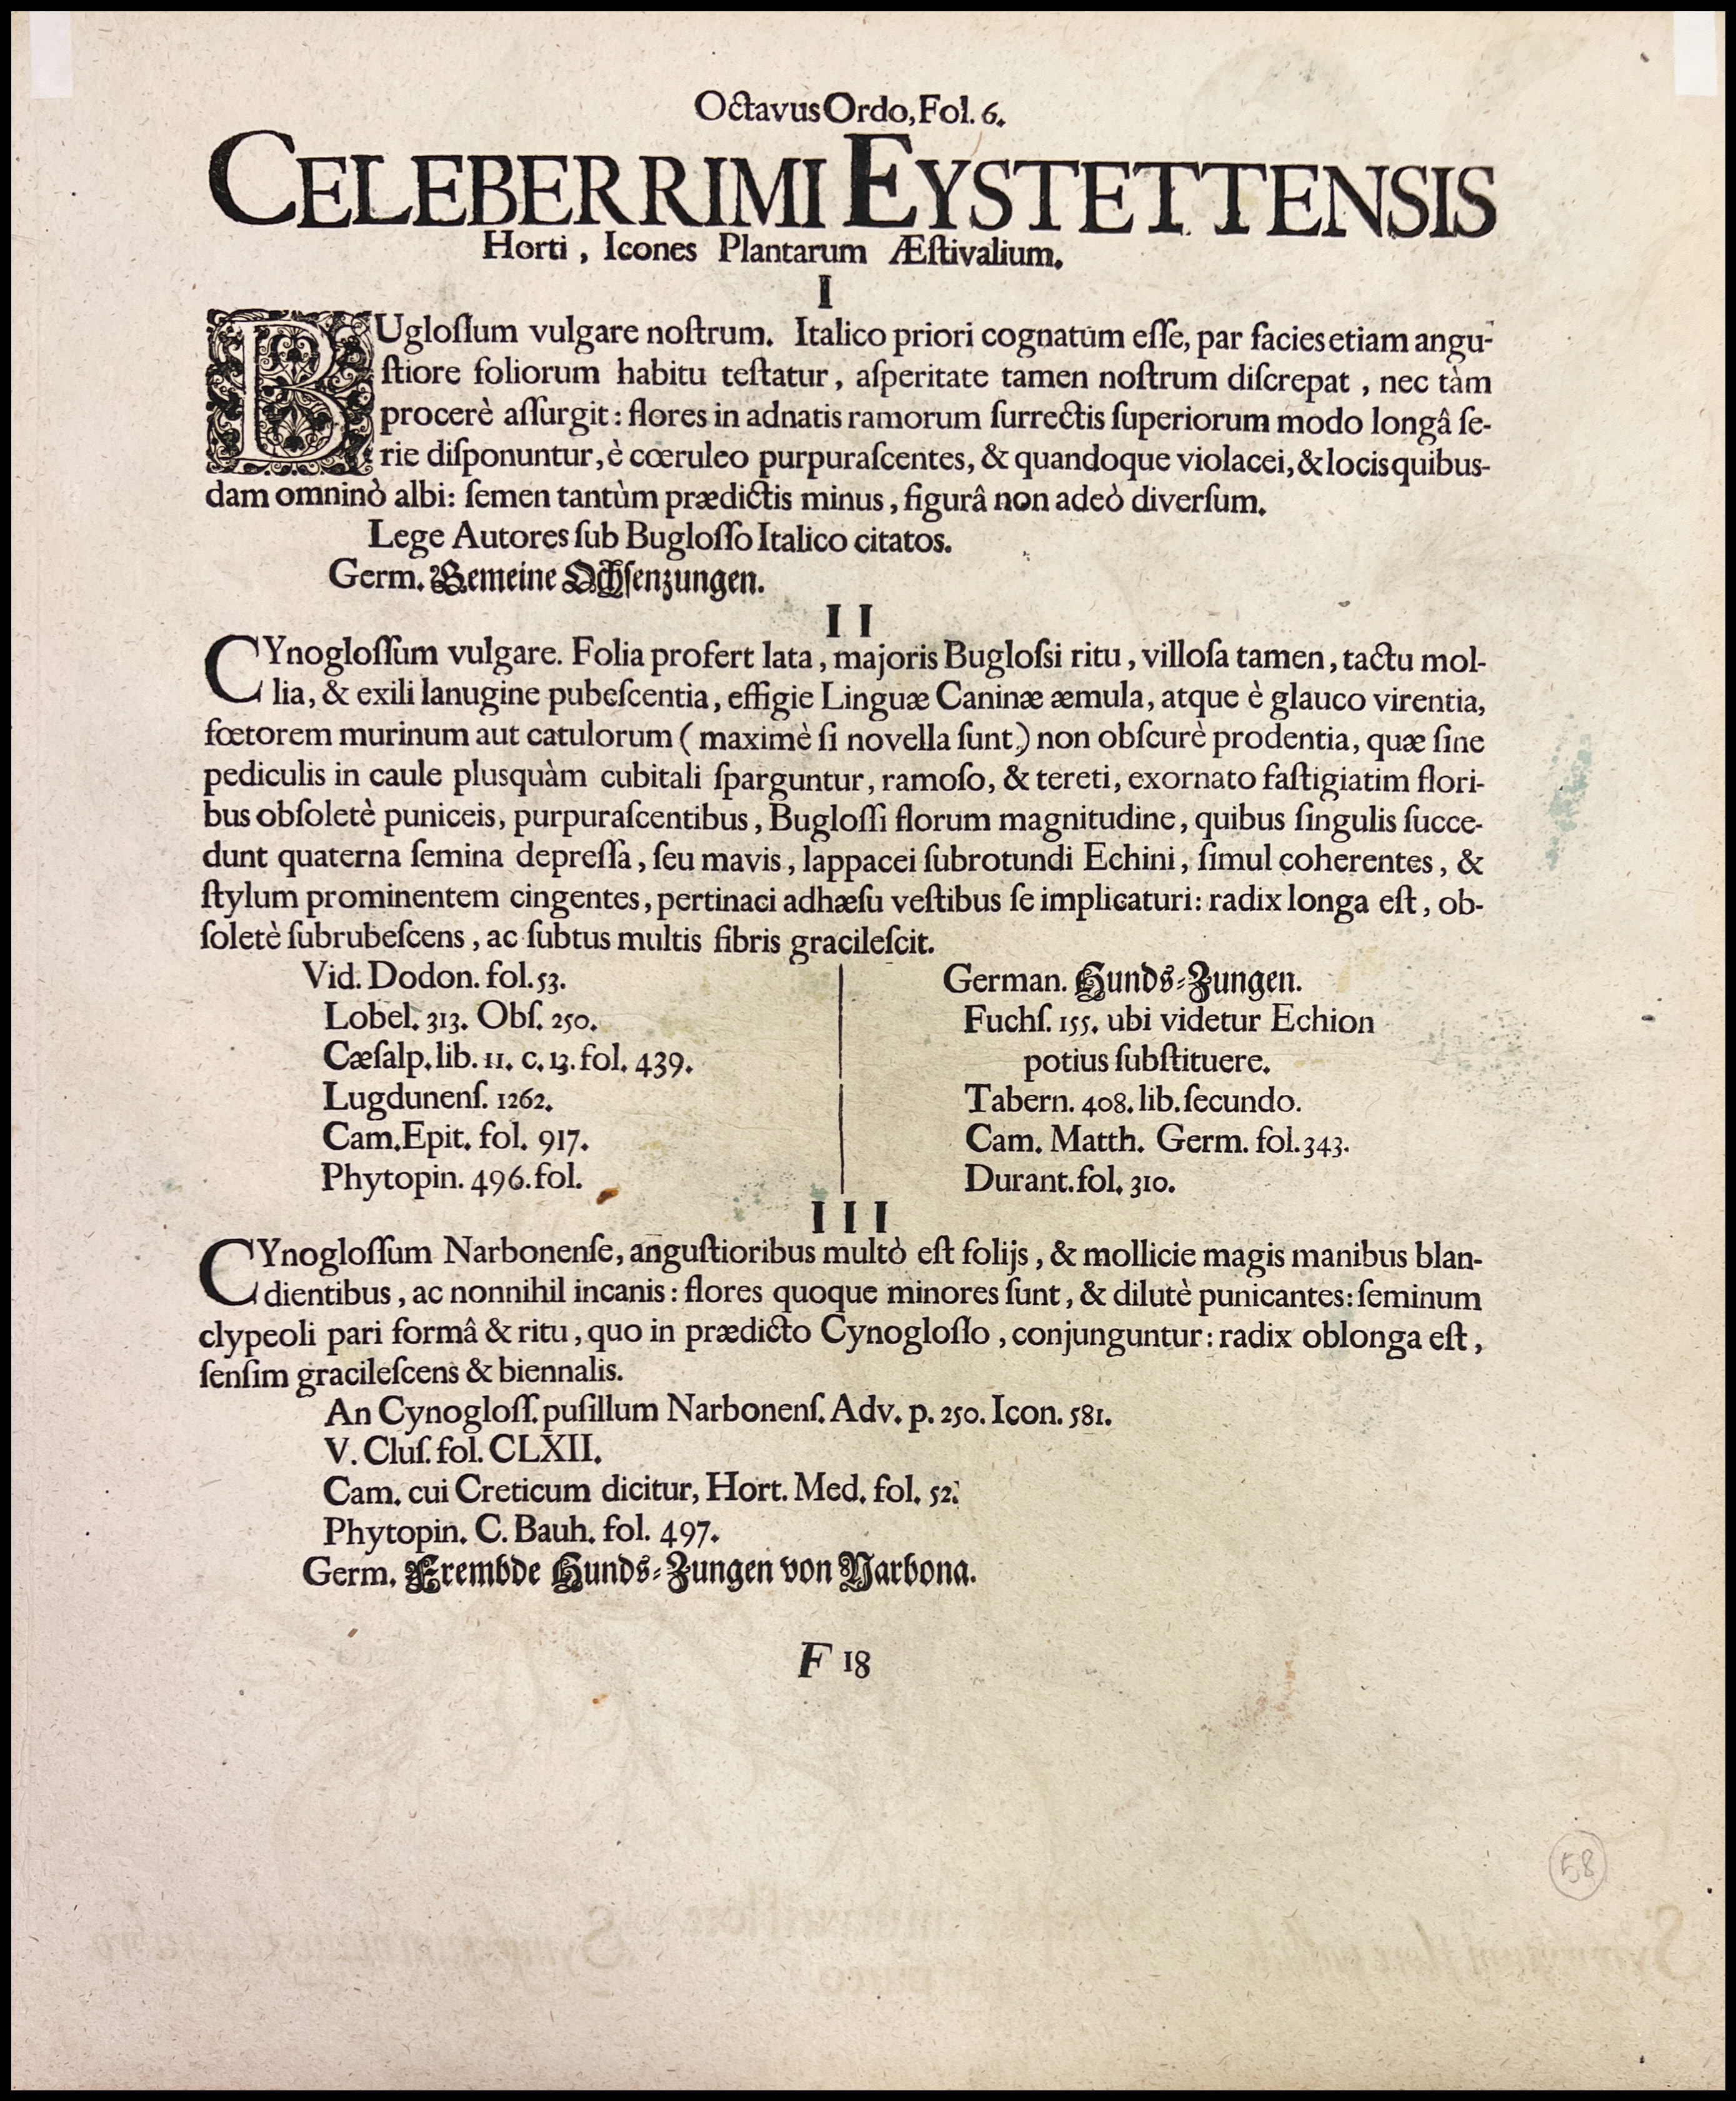 Octavus Ordo, Fol. 6.
CELEBERRIMI EYSTETTENSIS
Horti, Icones Plantarum Æſtivalium.
I
BUgloſſum vulgare noſtrum. Italico priori cognatum eſſe, par facies etiam angu-
ſtiore foliorum habitu teſtatur, aſperitate tamen noſtrum diſcrepat, nec tàm
procerè aſſurgit: flores in adnatis ramorum ſurrectis ſuperiorum modo longâ ſe-
rie diſponuntur, è cœruleo purpuraſcentes, & quandoque violacei, & locis quibus-
dam omninò albi: ſemen tantùm prædictis minus, figurâ non adeò diverſum.
Lege Autores ſub Bugloſſo Italico citatos.
Germ. Gemeine Ochſenzungen.
II
CYnogloſſum vulgare. Folia profert lata, majoris Bugloſsi ritu, villoſa tamen, tactu mol-
lia, & exili lanugine pubeſcentia, effigie Linguæ Caninæ æmula, atque è glauco virentia,
fœtorem murinum aut catulorum (maximè ſi novella ſunt) non obſcurè prodentia, quæ ſine
pediculis in caule plusquàm cubitali ſparguntur, ramoſo, & tereti, exornato faſtigiatim flori-
bus obſoletè puniceis, purpuraſcentibus, Bugloſſi florum magnitudine, quibus ſingulis ſucce-
dunt quaterna ſemina depreſſa, ſeu mavis, lappacei ſubrotundi Echini, ſimul coherentes, &
ſtylum prominentem cingentes, pertinaci adhæſu veſtibus ſe implicaturi: radix longa eſt, ob-
ſoletè ſubrubeſcens, ac ſubtus multis fibris gracileſcit.
Vid. Dodon. fol. 53.
Lobel. 313. Obſ. 250.
Cæſalp. lib. 11. c. 13. fol. 439.
Lugdunenſ. 1262.
Cam. Epit. fol. 917.
Phytopin. 496. fol.
German. Hunds-Zungen.
Fuchſ. 155. ubi videtur Echion
potius ſubſtituere.
Tabern. 408. lib. ſecundo.
Cam. Matth. Germ. fol. 343.
Durant. fol. 310.
III
CYnogloſſum Narbonenſe, anguſtioribus multò eſt folijs, & mollicie magis manibus blan-
dientibus, ac nonnihil incanis: flores quoque minores ſunt, & dilutè punicantes: ſeminum
clypeoli pari formâ & ritu, quo in prædicto Cynogloſſo, conjunguntur: radix oblonga eſt,
ſenſim gracileſcens & biennalis.
An Cynogloſſ. puſillum Narbonenſ. Adv. p. 250. Icon. 581.
V. Cluſ. fol. CLXII.
Cam. cui Creticum dicitur, Hort. Med. fol. 52.
Phytopin. C. Bauh. fol. 497.
Germ. Frembde Hunds-Zungen von Narbona.
F 18
58